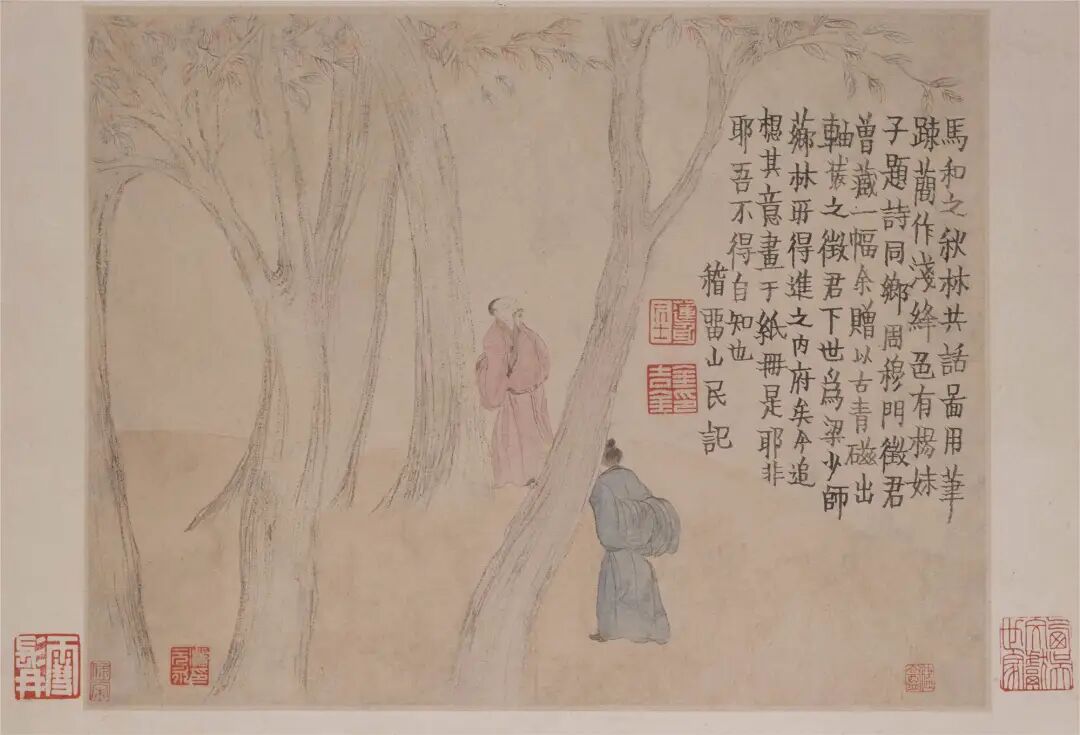 馬和之秋林共話啚用筆
踈蕳作淺絳色有楊妹
子題詩同鄉周穆門徵君
曾藏一幅余贈以古青磁出
軸裝之徵君下世爲梁少師
薌林所得進之内府矣今追
想其意畫于紙冊是耶非
耶吾不得自知也
稽畱山民記
金吉金印